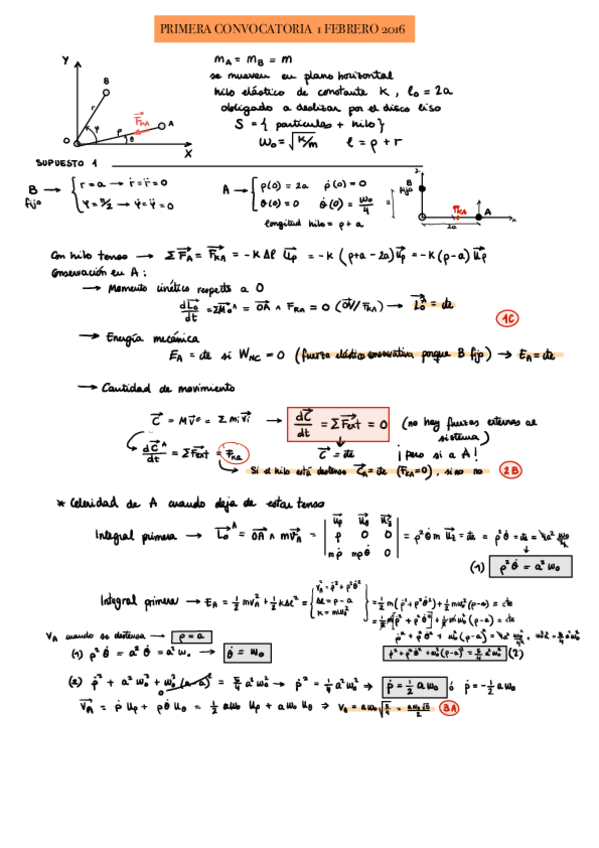 PRIMERA CONVOCATORIA 1 FEBRERO 2016
Y
B
r
φ
F_KA
ρ
A
θ
O
X
m_A = m_B = m
se mueven en plano horizontal
hilo elástico de constante K, l₀ = 2a
obligado a deslizar por el disco liso
S = { partículas + hilo }
ω₀ = √(K/m)   l = ρ + r
SUPUESTO 1
B fijo → { r = a → ṙ = r̈ = 0
φ = π/2 → φ̇ = φ̈ = 0
A → { ρ(0) = 2a   ρ̇(0) = 0
θ(0) = 0   θ̇(0) = ω₀/4
longitud hilo = ρ + a
B fijo
A
2a
Con hilo tenso → ΣF_A = F_KA = -K Δl u_ρ = -K (ρ+a-2a) u_ρ = -K (ρ-a) u_ρ
Conservación en A:
→ Momento cinético respecto a O
dL₀/dt = ΣM₀^A = OA ∧ F_KA = 0 (OA // F_KA) → L₀^A = cte
1C
→ Energía mecánica
E_A = cte si W_NC = 0 (fuerza elástica conservativa porque B fijo) → E_A = cte
→ Cantidad de movimiento
C = M v^G = Σ mᵢvᵢ → dC/dt = ΣF_ext = 0 (no hay fuerzas externas al sistema)
dC^A/dt = ΣF_ext = F_KA   C = cte   ¡pero si a A!
Si el hilo está destenso C_A = cte (F_KA = 0), si no no   2B
* Celeridad de A cuando deja de estar tenso
Integral primera → L₀^A = OA ∧ m v_A = | u_ρ u_θ u_z | ρ 0 0 | mρ̇ mρθ̇ 0 | = ρ²θ̇ m u_z = cte → ρ²θ̇ = cte = 4a² ω₀/4
(1) ρ²θ̇ = a²ω₀
Integral primera → E_A = ½ m v_A² + ½ K Δl² = { v_A² = ρ̇² + ρ²θ̇²
Δl = ρ - a
K = mω₀²
= ½ m (ρ̇² + ρ²θ̇²) + ½ m ω₀² (ρ-a)² = cte
ρ̇² + ρ²θ̇² + ω₀² (ρ-a)² = 5/4 a²ω₀² (2)
v_A cuando se destensa → ρ = a
(1) ρ²θ̇ = a²θ̇ = a²ω₀ → θ̇ = ω₀
(2) ρ̇² + a²ω₀² + ω₀² (a-a)² = 5/4 a²ω₀² → ρ̇² = ¼ a²ω₀² → ρ̇ = ½ aω₀ ó ρ̇ = -½ aω₀
v_A = ρ̇ u_ρ + ρθ̇ u_θ = ½ aω₀ u_ρ + aω₀ u_θ → v_A = aω₀ √(5/4) = aω₀√5/2   3A